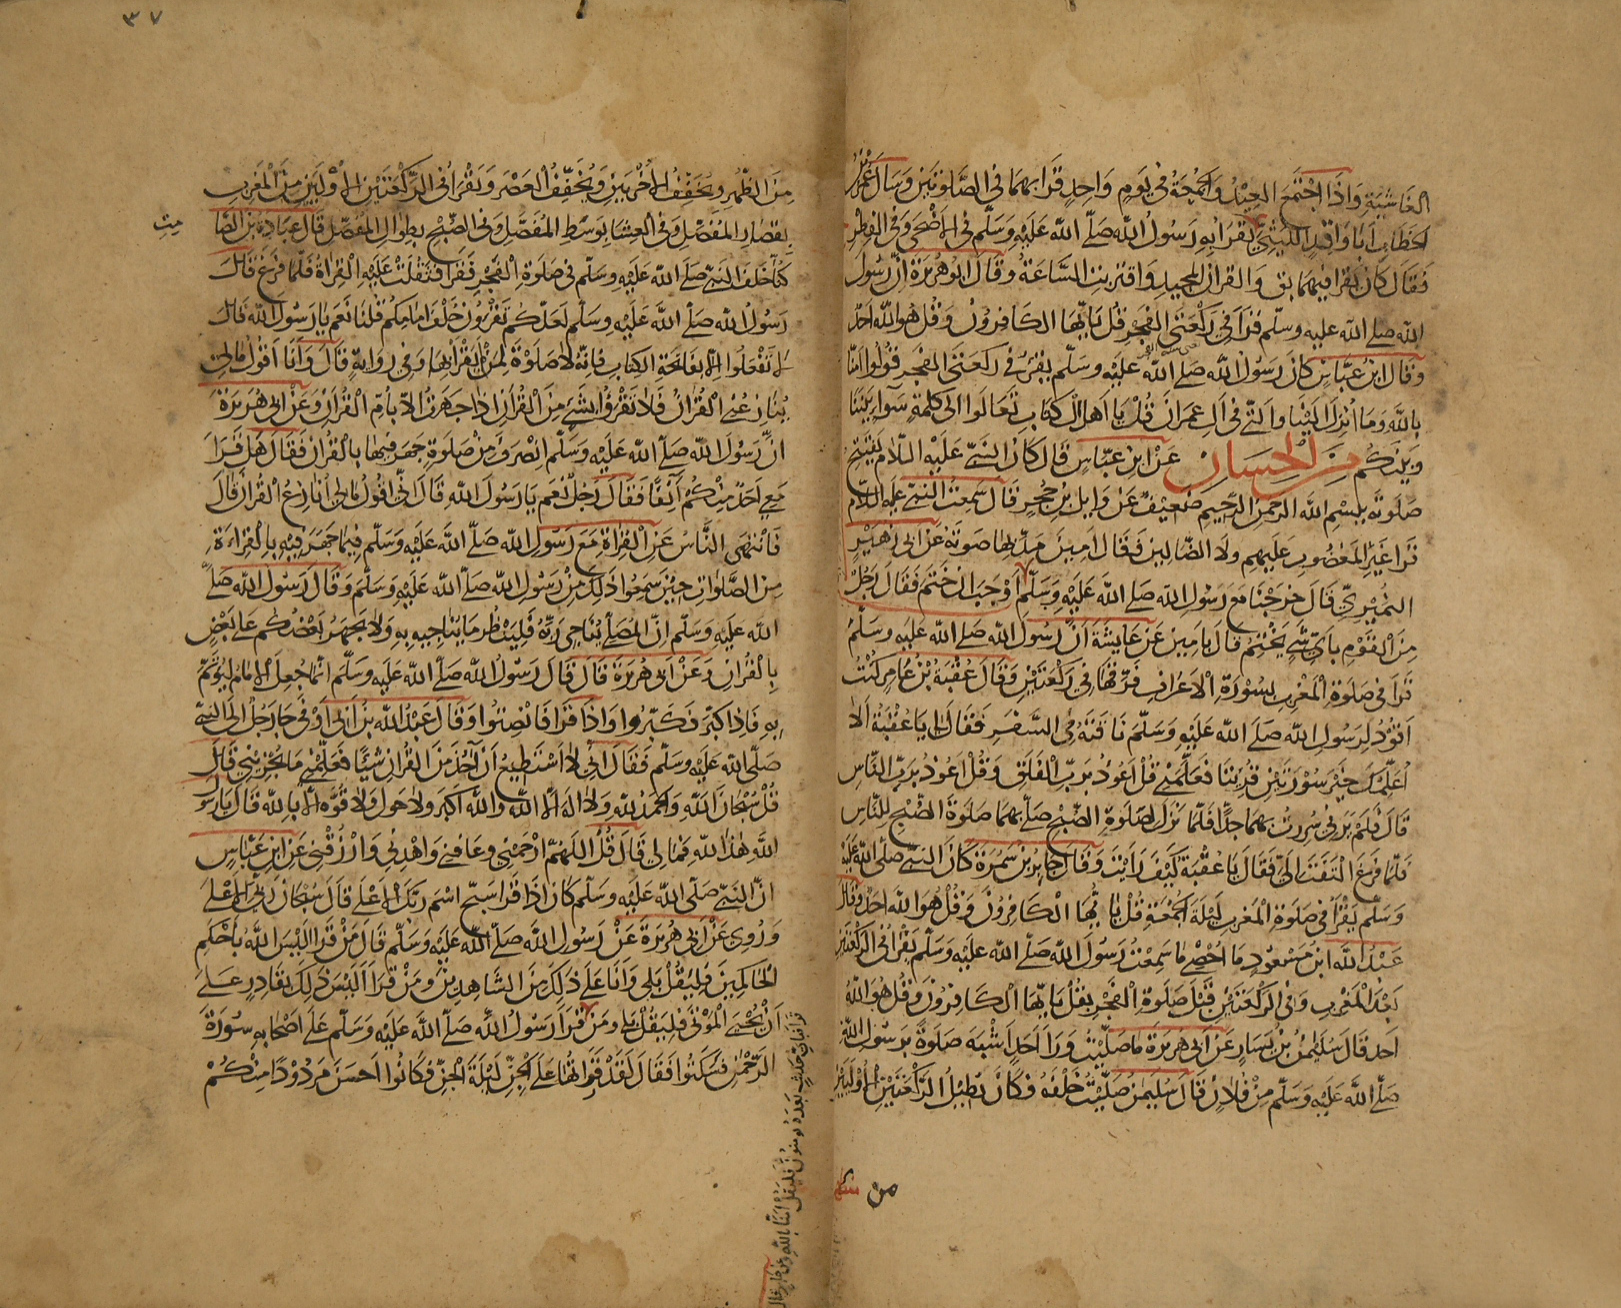 الغاشية وَاذَا اجْتَمَعَ العِيْدُ وَالجُمْعَةُ فى يَومٍ وَاحِدٍ قَرَا بِهِمَا فى الصَّلوتَيْنِ وَسَالَ عُمَرُ بْنُ
الخَطَّابِ اَبَا وَاقِدٍ اللَّيْثِيَّ مَا يَقْرَا بِهِ رَسُولُ اللهِ صَلَّى اللهُ عَلَيْهِ وَسَلَّم فى الاَضْحَى وَفى الفِطْرِ
فَقَالَ كَانَ يَقْرَا فِيهِمَا بق وَالقُرانِ المَجِيدِ وَاقتَرَبَتِ السَّاعَةُ وَقَالَ ابُو هُرَيرَةَ انَّ رَسُولَ
اللهِ صلى الله عليه وسلّم قَرَا فى رَكْعَتَى الفَجْرِ قُلْ يَا يُّهَا الكَافِرُونَ وَقُلْ هُوَ اللهُ اَحَدٌ
وَقَالَ ابْنُ عَبَّاسٍ كانَ رَسُولُ اللهِ صَلى اللهُ عَلَيْهِ وَسَلَّم يَقْرَءُ فى رَكعَتَى الفَجرِ قُولُوا امَنَّا
بِاللهِ وَمَا اُنْزِلَ الَيْنَا وَالتى فى آلِ عِمرَانَ قُلْ يَا اَهْلَ الْكِتَابِ تَعَالَوا الى كَلِمَةٍ سَوَاءٍ بَيْنَنَا
وَبَيْنَكُم مِنَ الحِسَانِ عَنْ ابنِ عَبّاسٍ قَالَ كَانَ النَّبىُّ عَلَيْهِ السَّلامُ يَفْتَتِحُ
صَلَوتَهُ بِبِسْمِ اللهِ الرَّحْمنِ الرَّحِيمِ ضَعِيْفٌ عَنْ وَايِلِ بْنِ حُجْرٍ قَالَ سَمِعْتُ النَّبىَّ عَلَيهِ السَّلام
قَرَا غَيْرِ المَغْضُوبِ عَلَيهِم وَلَا الضَّالِينَ فَقَالَ امِينَ مَدَّ بِهَا صَوتَهُ عَنْ ابى زُهَيْرٍ
النُّمَيْرِىِّ قَالَ خَرَجْنَا مَعَ رَسُولِ اللهِ صَلى اللهُ عَلَيْهِ وَسَلَّم اَوْجَبَ ان خَتَمَ فَقَالَ رَجُلٌ
مِنَ القَوْمِ بِاَىِّ شَىءٍ يَخْتِمُ قَالَ بِامِينَ عَنْ عَايِشَةَ اَنَّ رَسُولَ اللهِ صَلى اللهُ عَلَيهِ وَسَلَّمَ
قَرَا فى صَلَوةِ الْمَغْرِبِ بِسُوْرَةِ الْاَعْرَافِ فَرَّقَهَا فى رَكْعَتَيْنِ وَقَالَ عُقْبَةُ بْنُ عَامِرٍ كُنْتُ
اَقُوْدُ لِرَسُولِ اللهِ صَلَى اللهُ عَلَيْهِ وَسَلَّمَ نَاقَتَهُ فى السَّفَرِ فَقَالَ لى يَا عُقْبَةُ الا
اُعَلِّمُكَ خَيْرَ سُوْرَتَيْنِ قُرِئَتَا فَعَلَّمَنِى قُلْ اَعُوْذُ بِرَبِّ الْفَلَقِ وَقُلْ اَعُوذُ بِرَبِّ النَّاس
قَالَ فَلَمْ يَرَنى سُرِرتُ بِهِمَا جِدًّا فَلَمَّا نَزَلَ لِصَلَوةِ الصُّبْحِ صَلّى بِهِمَا صَلَوةَ الصُّبْحِ لِلنَّاسِ
فَلَمَّا فَرَغَ الْتَفَتَ الىَّ فَقَالَ يَا عُقْبَةُ كَيْفَ رَايْتَ وَقَالَ جَابِرُ بْنُ سَمُرَةَ كَانَ النَّبىُّ صَلى اللهُ عَلَيْهِ
وَسَلَّم يَقْرَا فى صَلَوةِ المَغْرِبِ لَيْلَةَ الجُمُعَةِ قُلْ يَا يُّهَا الْكَافِرُوْنَ وَقُلْ هُوَ اللهُ اَحَدٌ وَقَالَ
عَبْدُ اللهِ ابنُ مَسْعُوْدٍ مَا اُحْصِى مَا سَمِعْتُ رَسُوْلَ اللهِ صَلّى اللهُ عَلَيْهِ وَسَلَّم يَقْرَا فى الرَّكْعَتَيْنِ
بَعْدَ المَغْرِبِ وَفى الرَّكْعَتَيْنِ قَبْلَ صَلَوةِ الفَجْرِ بِقُلْ يَا يُّهَا الْكَافِرُوْنَ وَقُلْ هُوَ اللهُ
اَحَد قَالَ سُلَيْمنُ بْنُ يَسَارٍ عَنْ ابى هُرَيرَةَ مَا صَلَّيْتُ وَرَاَ اَحَدٍ اَشْبَهَ صَلَوةً بِرَسُوْلِ اللهِ
صَلّى اللهُ عَلَيْهِ وَسَلَّم مِنْ فُلَانٍ قَالَ سُلَيْمنُ صَلَّيْتُ خَلْفَهُ فَكَانَ يُطِيْلُ الرَّكْعَتَيْنِ الْاُوْلَيَيْنِ
من
٣٧
مِنَ الظُّهْرِ وَيُخَفِّفُ الْاُخْرَيَيْنِ وَيُخَفِّفُ الْعَصْرَ وَيَقْرَا فى الرَّكْعَتَيْنِ الْاُوْلَيَيْنِ مِنَ الْمَغْرِبِ
بِقِصَارِ الْمُفَصَّلِ وَفى الْعِشَا بِوَسَطِ الْمُفَصَّلِ وَفى الصُّبْحِ بِطِوَالِ المُفَصَّلِ قَالَ عُبَادَةُ بْنُ الصَّا
مِتِ
كُنَّا خَلْفَ النَّبىِّ صَلى اللهُ عَلَيْهِ وَسَلّم فى صَلَوةِ الْفَجْرِ فَقَرَا فَثَقُلَتْ عَلَيْهِ الْقِرَاةُ فَلَمَّا فَرَغَ قَالَ
رَسُولُ اللهِ صَلّى اللهُ عَلَيْهِ وَسَلَّم لَعَلَّكُم تَقْرَؤُنَ خَلْفَ اِمَامِكُم قُلْنَا نَعَم يَا رَسُولَ اللهِ قَالَ
لَا تَفْعَلُوا الَّا بِفَاتِحَةِ الكِتَابِ فَانَّهُ لَا صَلَوةَ لِمَنْ لَمْ يَقْرَا بِهَا وَفى رِوَايَةٍ قَالَ وَاَنَا اَقُولُ مَالى
يُنَازِعُنِى القُرْآنُ فَلَا تَقْرَؤُا بِشَىْءٍ مِنَ الْقُرْآنِ اذَا جَهَرْتُ الَّا بِاُمِّ القُرْآنِ وَعَنْ ابى هُرَيرَةَ
اَنَّ رَسُولَ اللهِ صَلّى اللهُ عَلَيْهِ وَسَلَّم اِنْصَرَفَ مِنْ صَلَوةٍ جَهَرَ فِيهَا بِالْقُرْآنِ فَقَالَ هَلْ قَرَا
مَعِى اَحَدٌ مِنْكُم آنِفًا فَقَالَ رَجُلٌ نَعَم يَا رَسُوْلَ اللهِ قَالَ انِّى اَقُولُ مَالى اُنَازَعُ القُرْآنَ قَالَ
فَانْتَهَى النَّاسُ عَنِ الْقِرَاةِ مَعَ رَسُولِ اللهِ صَلَّى اللهُ عَلَيْهِ وَسَلّم فِيمَا جَهَرَ فِيْهِ بِالْقِرَاءَةِ
مِنَ الصَّلَوَاتِ حِيْنَ سَمِعُوا ذَلِكَ مِنْ رَسُولِ اللهِ صَلّى اللهُ عَلَيْهِ وَسَلَّم وَقَالَ رَسُولُ اللهِ صَلَّى
اللهُ عَلَيْهِ وَسَلَّم اِنَّ المُصَلِّىَ يُنَاجِى رَبَّهُ فَلْيَنْظُرْ مَا يُنَاجِيهِ بِهِ وَلَا يَجْهَرْ بَعْضُكُم عَلى بَعْضٍ
بِالْقُرْانِ وَعَنْ ابى هُرَيرَةَ قَالَ قَالَ رَسُوْلُ اللهِ صَلّى اللهُ عَلَيْهِ وَسَلَّم انَّمَا جُعِلَ الْاِمَامُ لِيُؤْتَمَّ
بِهِ فَاِذَا كَبَّرَ فَكَبِّرُوا وَاذَا قَرَا فَانْصِتُوا وَقَالَ عَبْدُ اللهِ بْنُ اَبى اَوْفى جَا رَجُلٌ اِلَى النَّبىِّ
صَلّى اللهُ عَلَيْهِ وَسَلّم فَقَالَ انِّى لَا اَسْتَطِيعُ اَنْ آخُذَ مِنَ القُرْانِ شَيْئًا فَعَلِّمْنِى مَا يُجْزِئُنِى قَالَ
قُلْ سُبْحَانَ اللهِ وَالحَمدُ للهِ وَلَا الَهَ الَّا اللهُ وَاللهُ اَكبَرُ وَلَا حَولَ وَلَا قُوَّةَ الَّا بِاللهِ قَالَ يَا رَسُو
اللَّهِ هٰذَا للهِ فَمَا لى قَالَ قُلْ اللَّهُمَّ ارْحَمْنِى وَعَافِنى وَاهْدِنى وَارْزُقْنِى عَنِ ابنِ عَبَّاسٍ
انَّ النَّبىَّ صَلّى اللهُ عَلَيْهِ وَسَلَّم كَانَ اذَا قَرَا سَبِّحِ اسْمَ رَبِّكَ الْاَعْلَى قَالَ سُبْحَانَ رَبِّىَ الْاَعْلَى
وَرُوِىَ عَنْ ابى هُرَيرَةَ عَنْ رَسُولِ اللهِ صَلّى اللهُ عَلَيْهِ وَسَلَّم قَالَ مَنْ قَرَا اَلَيْسَ اللهُ بِاَحْكَمِ
الْحَاكِمِيْنَ فَلْيَقُلْ بَلى وَاَنَا عَلى ذَلِكَ مِنَ الشَّاهِدِيْنَ وَمَنْ قَرَا اَلَيْسَ ذَلِكَ بِقَادِرٍ عَلى
اَنْ يُحْيِىَ الْمَوْتى فَلْيَقُلْ بَلى وَمَنْ قَرَا رَسُولُ اللهِ صَلّى اللهُ عَلَيْهِ وَسَلَّم عَلى اَصْحَابِهِ سُوْرَةَ
الرَّحْمنِ فَسَكَتُوا فَقَالَ لَقَدْ قَرَاتُهَا عَلى الْجِنِّ لَيْلَةَ الْجِنِّ فَكَانُوا اَحسَنَ مَرْدُوْدًا مِنْكُمْ
قَرَا فَبِاَىِّ حَدِيثٍ بَعْدَهُ يُومِنُونَ فَلْيَقُلْ امَنَّا بِاللهِ وَعَن جَابِر قَالَ